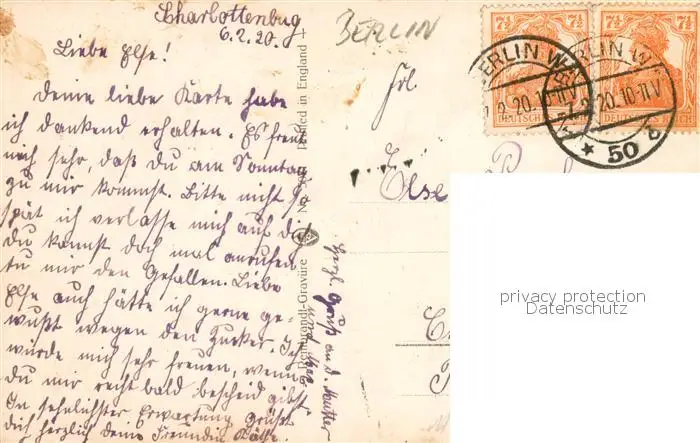 Charlottenbug
6.2.20.
Liebe Else!
Deine liebe Karte habe
ich dankend erhalten. Es freut
mich sehr, daß du am Sonntag
zu mir kommst. Bitte nicht so
spät ich verlasse mich auf dich
Du kannst doch mal anrufen
tu mir den Gefallen. Liebe
Else auch hätte ich gerne ge-
wußt wegen den Zucker. Ich
würde mich sehr freuen, wenn
du mir recht bald bescheid gibst
In sehnlichster Erwartung grüßt
dich herzlich deine Freundin Käthe.
Herzl. Gruß an d. Mutter
Rembrandt-Gravüre
No
Printed in England
BERLIN
Frl.
Else
7½ 7½
DEUTSCHES REICH
DEUTSCHES REICH
BERLIN W
BERLIN W
2.20.10-11V
2.20.10-11V
* 50
privacy protection
Datenschutz